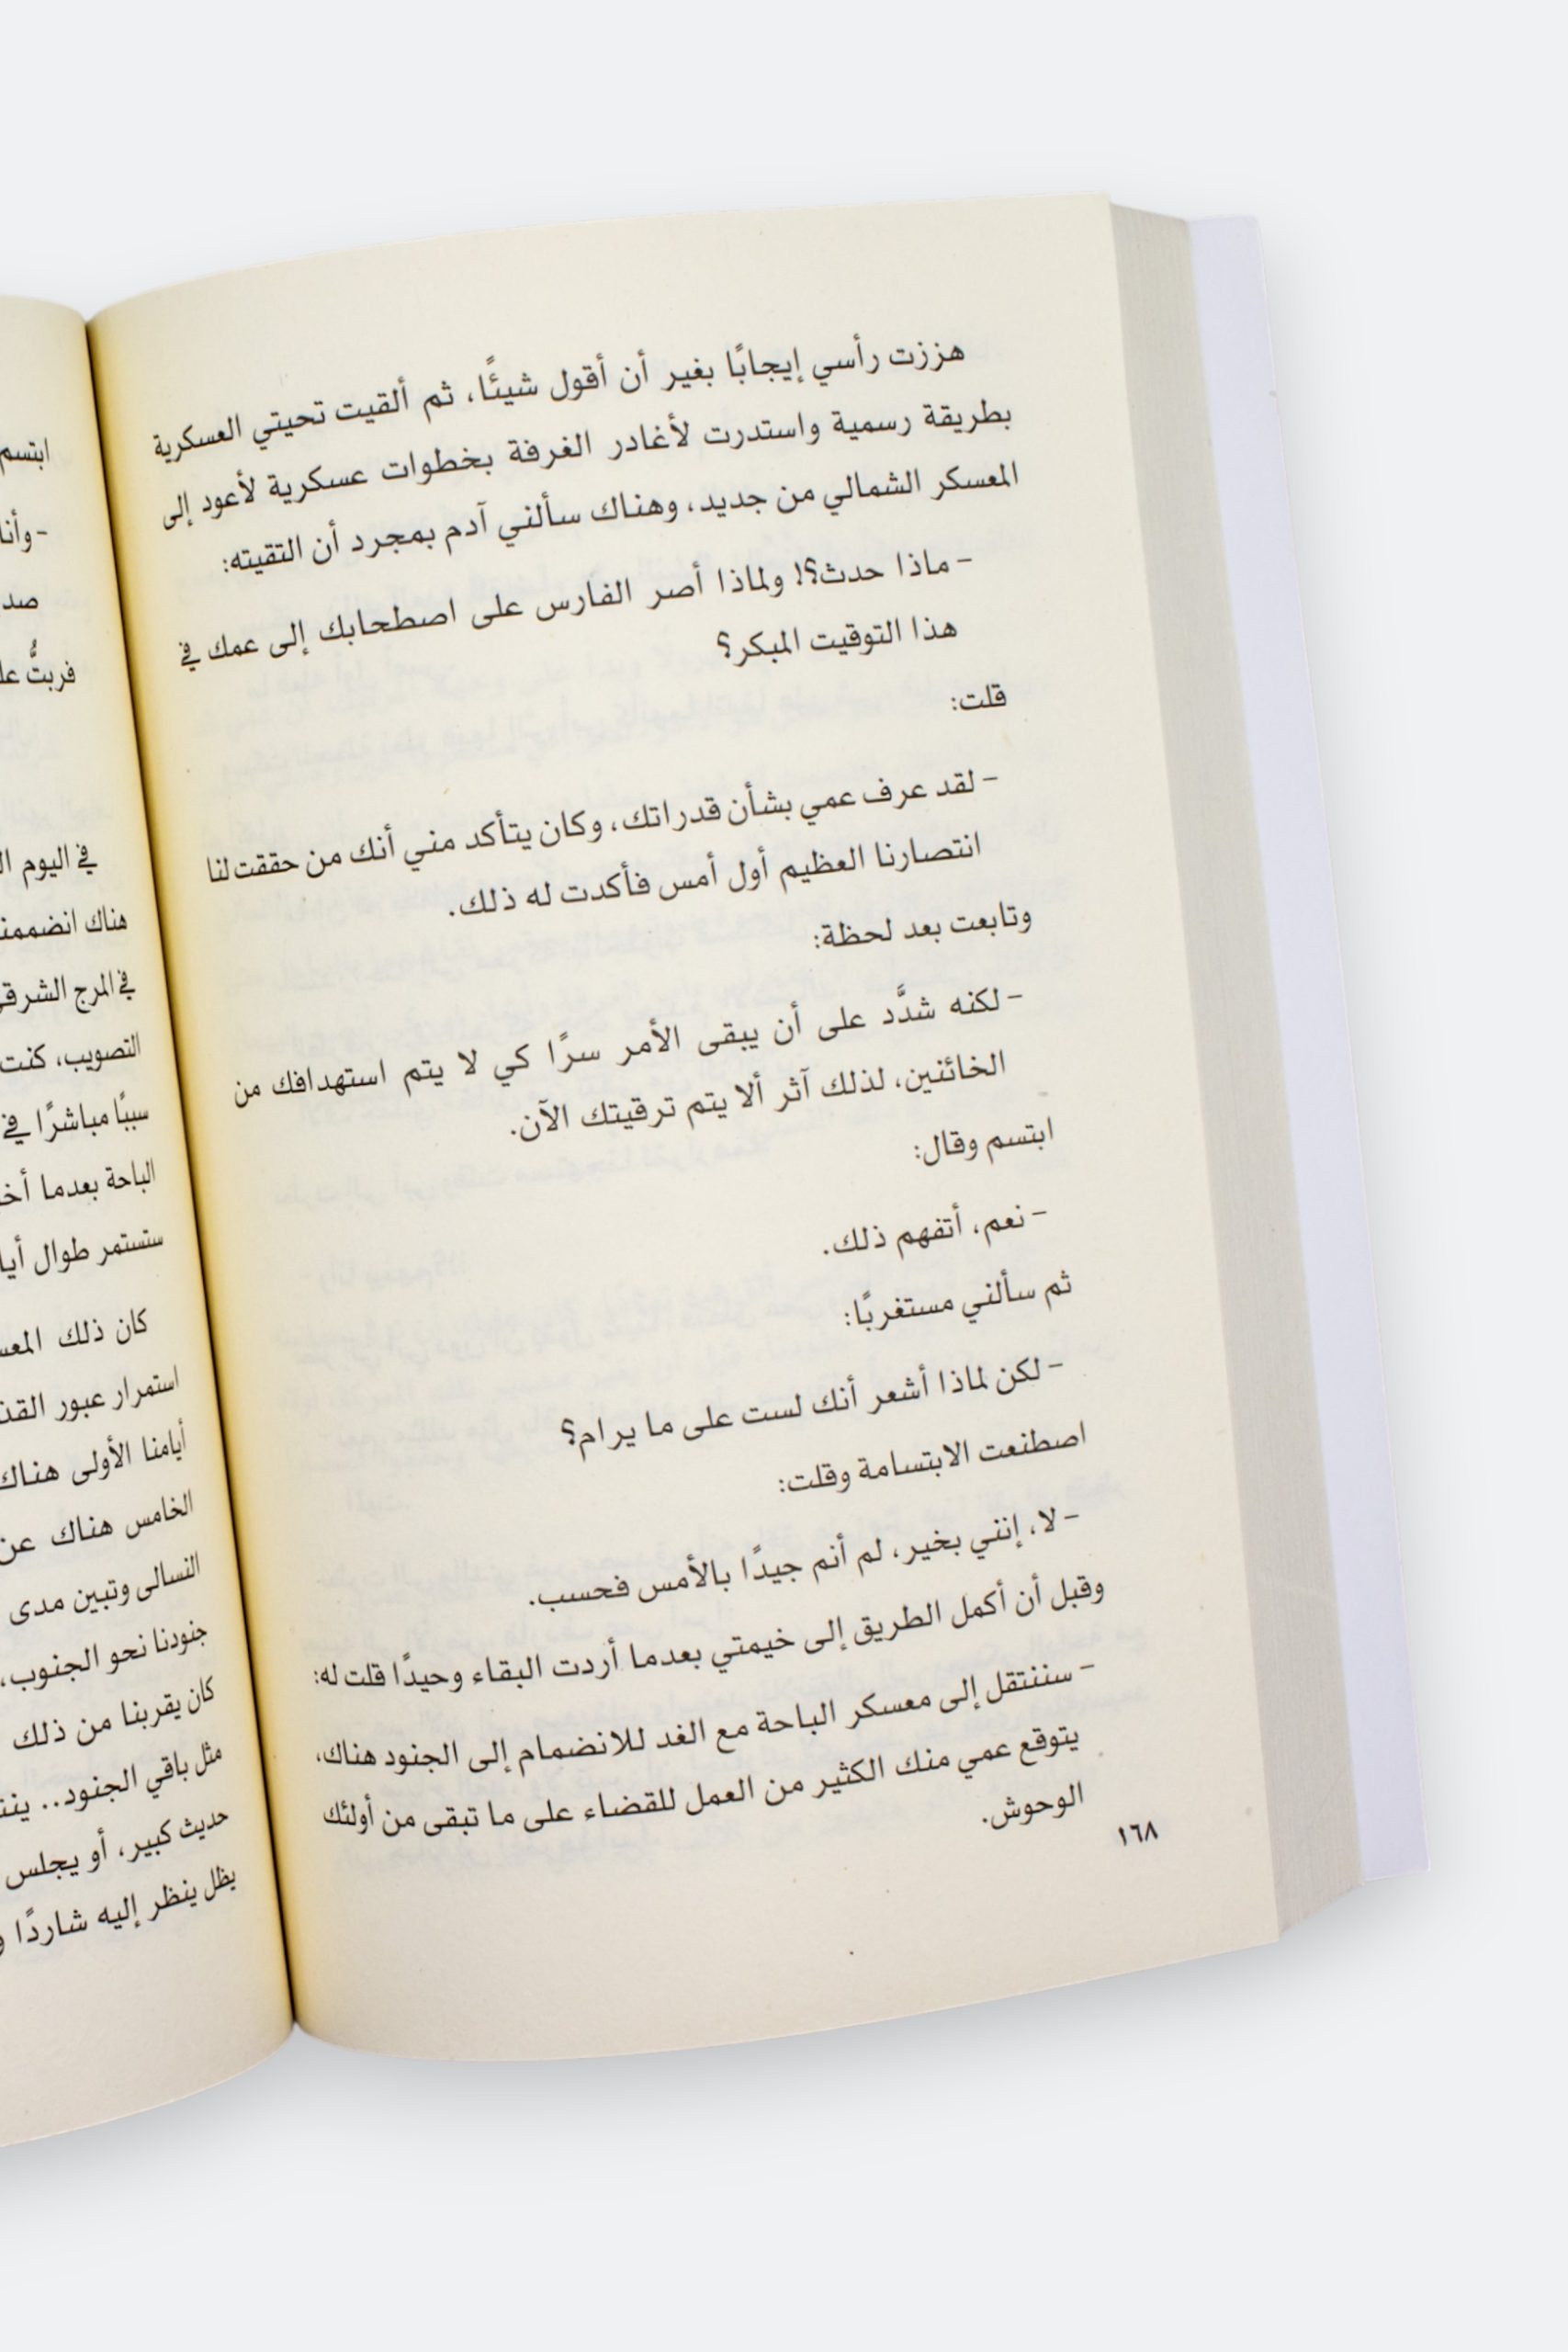 هززت رأسي إيجابًا بغير أن أقول شيئًا، ثم ألقيت تحيتي العسكرية
بطريقة رسمية واستدرت لأغادر الغرفة بخطوات عسكرية لأعود إلى
المعسكر الشمالي من جديد، وهناك سألني آدم بمجرد أن التقيته:
- ماذا حدث؟! ولماذا أصر الفارس على اصطحابك إلى عمك في
هذا التوقيت المبكر؟
قلت:
- لقد عرف عمي بشأن قدراتك، وكان يتأكد مني أنك من حققت لنا
انتصارنا العظيم أول أمس فأكدت له ذلك.
وتابعت بعد لحظة:
- لكنه شدَّد على أن يبقى الأمر سرًا كي لا يتم استهدافك من
الخائنين، لذلك آثر ألا يتم ترقيتك الآن.
ابتسم وقال:
- نعم، أتفهم ذلك.
ثم سألني مستغربًا:
- لكن لماذا أشعر أنك لست على ما يرام؟
اصطنعت الابتسامة وقلت:
- لا، إنني بخير، لم أنم جيدًا بالأمس فحسب.
وقبل أن أكمل الطريق إلى خيمتي بعدما أردت البقاء وحيدًا قلت له:
- سننتقل إلى معسكر الباحة مع الغد للانضمام إلى الجنود هناك،
يتوقع عمي منك الكثير من العمل للقضاء على ما تبقى من أولئك
الوحوش.
١٦٨
ابتسم
- وأنا
فربتُّ
في اليوم
هناك
في المرج
التصويب، كنت
سببًا مباشرًا في
الباحة بعدما
ستستمر طوال
كان ذلك
استمرار عبور
أيامنا الأولى هناك
الخامس هناك عن
النسالى وتبين مدى
جنودنا نحو الجنوب،
كان يقربنا من ذلك
مثل باقي الجنود..
حديث كبير، أو يجلس
يظل ينظر إليه شاردًا